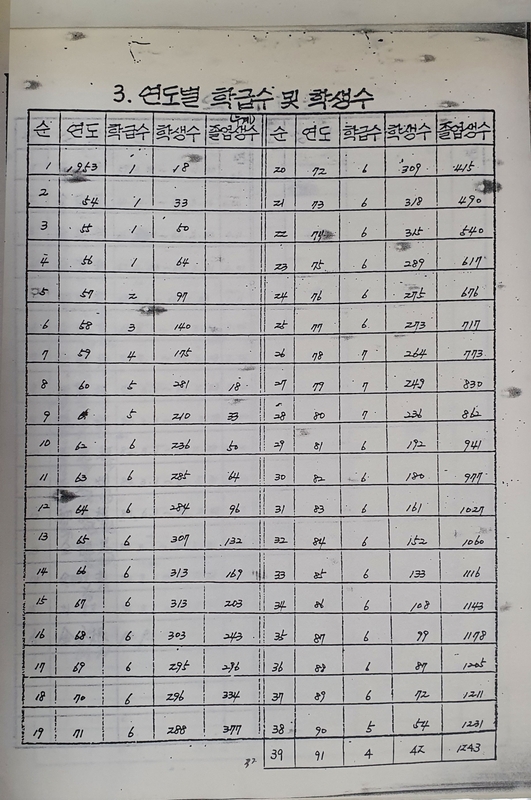 3. 연도별 학급수 및 학생수
(누계)
순 연도 학급수 학생수 졸업생수 순 연도 학급수 학생수 졸업생수
1 1953 1 18 20 72 6 309 415
2 54 1 33 21 73 6 318 490
3 55 1 50 22 74 6 315 540
4 56 1 64 23 75 6 289 617
5 57 2 97 24 76 6 275 676
6 58 3 140 25 77 6 273 717
7 59 4 175 26 78 7 264 773
8 60 5 281 18 27 79 7 249 830
9 61 5 210 33 28 80 7 236 862
10 62 6 236 50 29 81 6 192 941
11 63 6 285 64 30 82 6 180 977
12 64 6 284 96 31 83 6 161 1027
13 65 6 307 132 32 84 6 152 1060
14 66 6 313 169 33 85 6 133 1116
15 67 6 313 203 34 86 6 108 1143
16 68 6 303 243 35 87 6 99 1178
17 69 6 295 296 36 88 6 87 1205
18 70 6 296 334 37 89 6 72 1211
19 71 6 288 377 38 90 5 54 1231
39 91 4 42 1243
32